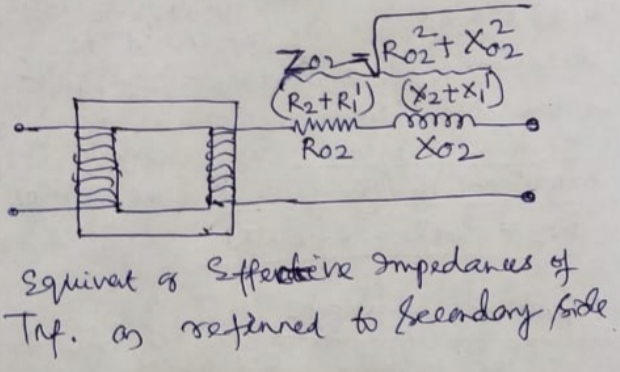 Z02 = √R02² + X02²
(R2+R1') (X2+X1')
R02 X02
Equivalent or Effective Impedances of
Trf. as referred to Secondary side